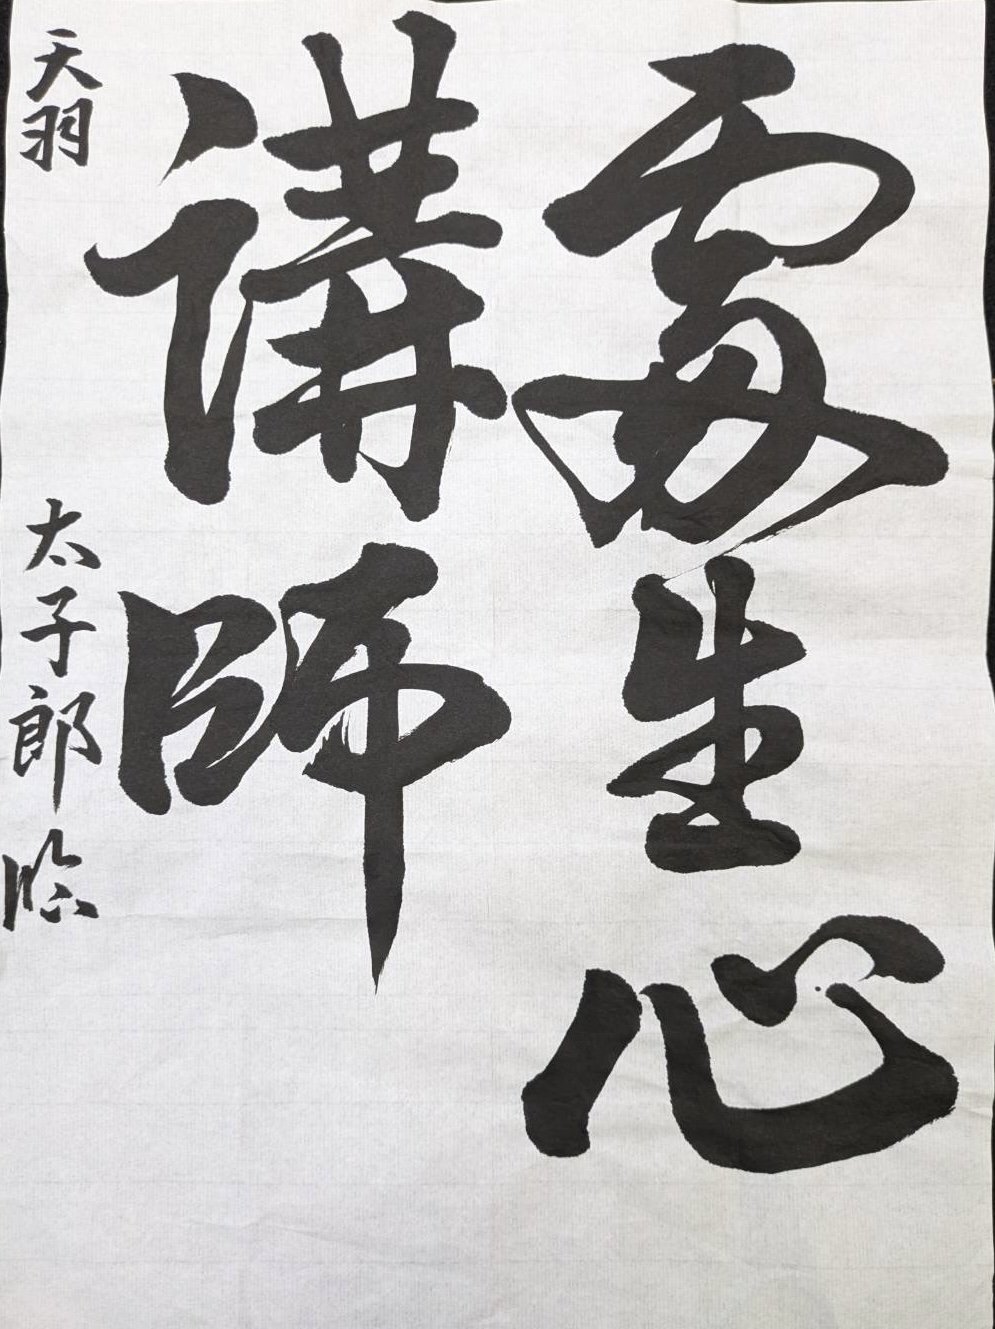 生心
講師
天羽 太子郎 臨